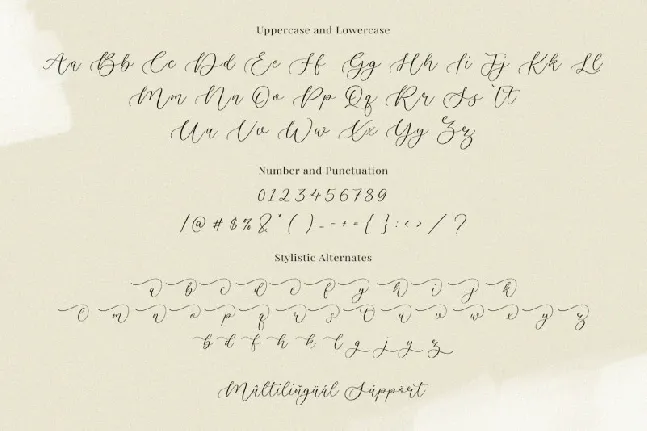 Uppercase and Lowercase
Aa Bb Cc Dd Ee Ff Gg Hh Ii Jj Kk Ll
Mm Nn Oo Pp Qq Rr Ss Tt
Uu Vv Ww Xx Yy Zz
Number and Punctuation
0123456789
! @ # $ % & * ( ) _ - + = { } : < > / ?
Stylistic Alternates
g h i j k
l m n o p q r s t u v w x y z
b d f h k l g j y z
Múltilingüál Súppórt